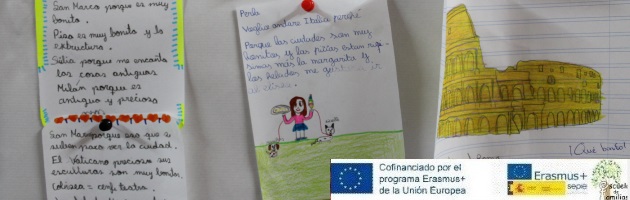 San Marco porque es muy
bonito.
Pisa es muy bonito y la
estructura.
Sicilia porque me encanta
las cosas antiguas
Milán porque es
antiguo y precioso
San Marco porque eso que si
suben para ver la ciudad.
El Vaticano precioso sus
esculturas son muy bonitas
Coliseo = anfiteatro.
Perla
Voglio andare Italia perché
Porque las ciudades son muy
bonitas y las pizzas están riqui-
simas más la margarita y
los helados me gustaría ir
¡Que bonito!
Cofinanciado por el
programa Erasmus+
de la Unión Europea
Erasmus+
sepie
escuela
de
familias